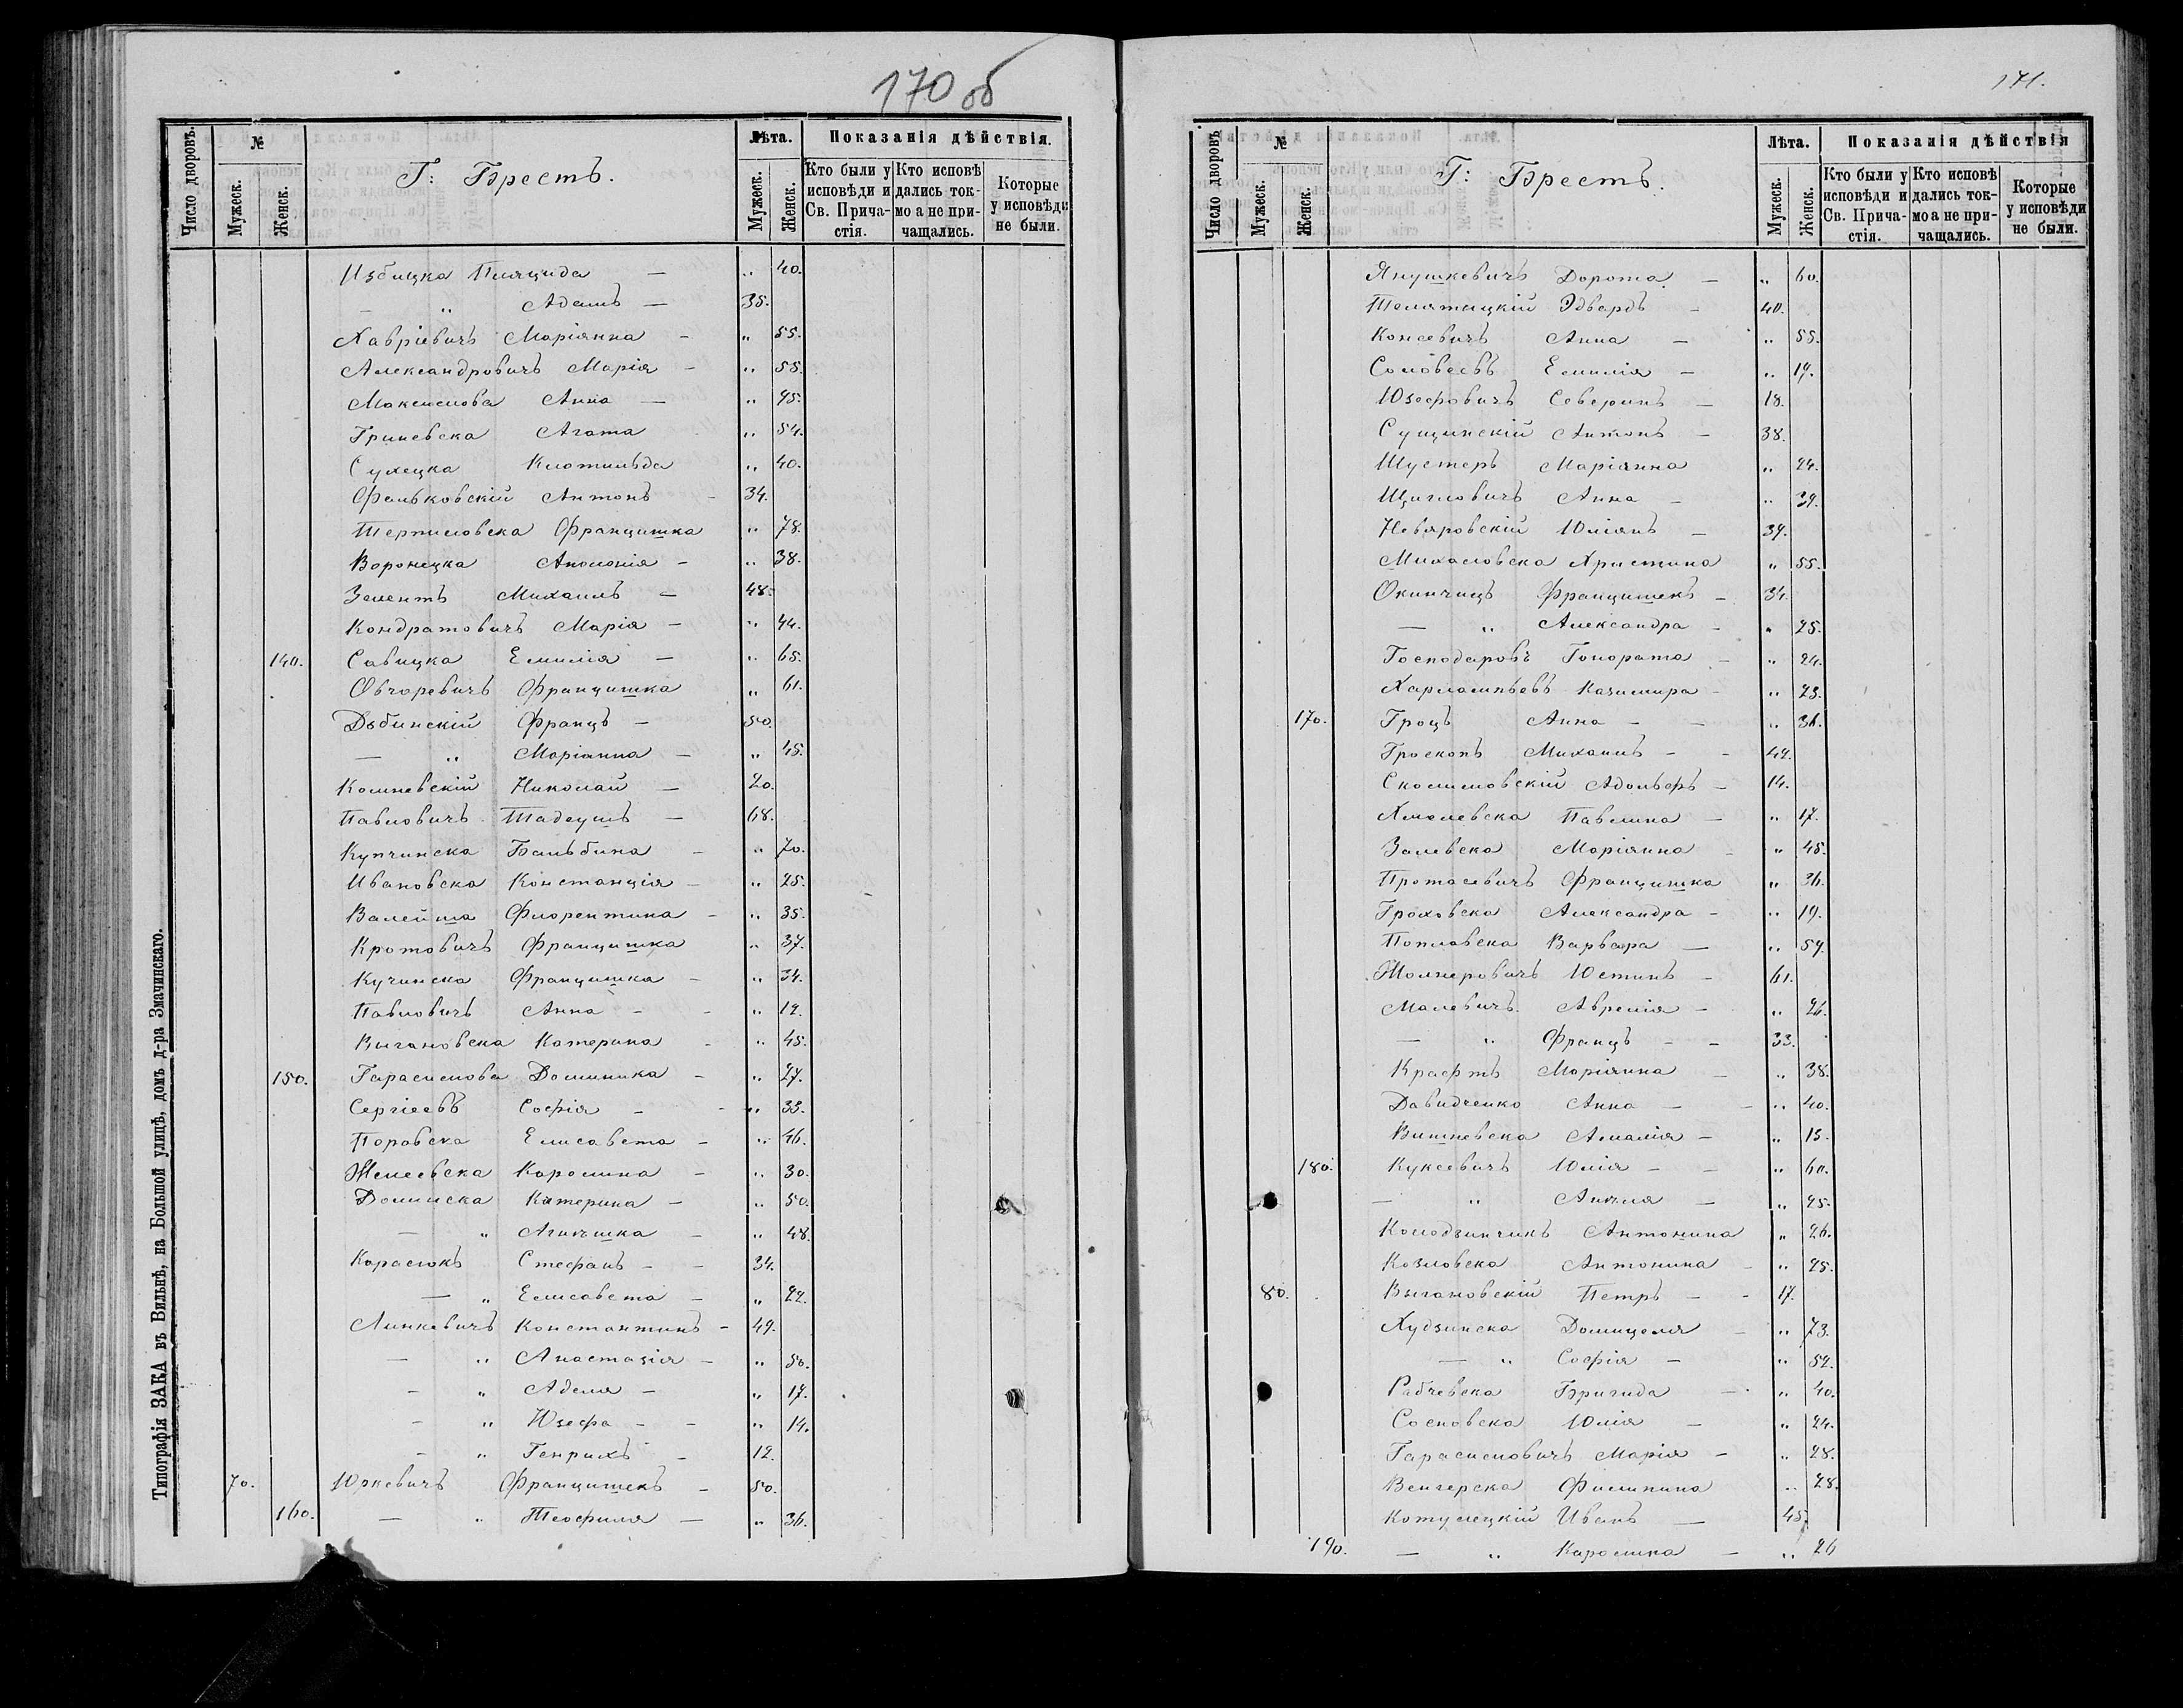 170 об
Число дворовъ.
№
Мужеск.
Женск.
Г: Брестъ.
Лѣта.
Мужеск.
Женск.
Показанія дѣйствія.
Кто были у исповѣди и Св. Причастія.
Кто исповѣдались токмо а не причащались.
Которые у исповѣди не были.
Избицка Пляцида — „ 40.
— „ Адамъ — 35.
Хавріевичъ Маріянна — „ 55.
Александровичъ Марія — „ 55.
Максимова Анна — „ 45.
Гриневска Агата „ 54.
Сухецка Клотильда „ 40.
Фальковскій Антонъ — 34.
Францишка „ 78.
Воронецка Аполонія — „ 38.
Зелентъ Михаилъ — 48.
Кондратовичъ Марія — „ 44.
140. Савицка Емилія — „ 65.
Овчаревичъ Францишка „ 61.
Дыбинскій Францъ — 50.
— „ Маріанна — „ 45.
Николай — 20.
Павловичъ Тадеушъ — 68.
Купчинска Бальбина — „ 70.
Ивановска Констанція — „ 25.
Валейша Флорентина — „ 35.
Кротовичъ Францишка „ 37.
Кучинска Францишка — „ 34.
Павловичъ Анна — — „ 12.
Выгановска Катерина — „ 45.
150. Гарасимова Доминика — „ 27.
Сергіевъ Софія — — „ 33.
Поровска Елисавета — „ 46.
Каролина — „ 30.
Катерина — „ 50.
— „ Агнѣшка — „ 48.
Карасюкъ Стефанъ — — 34.
— „ Елисавета — „ 22.
Линкевичъ Константинъ — 49.
— „ Анастазія — „ 50.
— „ Аделя — „ 17.
— „ Юзефа — — „ 14.
— „ Генрихъ — 12.
70. Юркевичъ Францишекъ — 50.
160. — „ Теофиля — „ 36.
Типографія ЗАКА въ Вильнѣ, на Большой улицѣ, домъ д-ра Змачинскаго.
171.
Число дворовъ
№
Мужеск.
Женск.
Г: Брестъ.
Лѣта.
Мужеск.
Женск.
Показанія дѣйствія
Кто были у исповѣди и Св. Причастія.
Кто исповѣдались токмо а не причащались.
Которые у исповѣди не были.
Янушкевичъ Дорота — „ 60.
Телятицкій Эдвардъ — 40.
Консевичъ Анна — „ 55.
Соловьевъ Емилія — „ 19.
Юзефовичъ Северинъ — 18.
Сущинскій Антонъ — 38.
Шустеръ Маріанна „ 24.
Щигловичъ Анна — „ 39.
Невяровскій Юліянъ — 39.
Михаловска Христина „ 55.
Окинчицъ Францишекъ — 34.
— „ Александра — „ 25.
Господаровъ Гонората — „ 24.
Харлампьевъ Казимира — „ 23.
170. Гроцъ Анна — — „ 36.
Гроскопъ Михаилъ — — 42.
Сколимовскій Адольфъ — 14.
Хмелевска Павлина — „ 17.
Залевска Маріянна — „ 45.
Протасевичъ Францишка „ 36.
Гроховска Александра — „ 19.
Поплавска Варвара — „ 59.
Жолнеровичъ Юстинъ — 61.
Малевичъ Аврелія — „ 26.
— „ Францъ — — 33.
Крафтъ Маріянна — „ 38.
Давидченко Анна — — „ 40.
Вишневска Амалія — „ 15.
180. Куксевичъ Юлія — — „ 60.
— „ Анѣля — „ 25.
Колодзинчикъ Антонина „ 26.
Козловска Антонина — „ 25.
80. Выгановскій Петръ — — 17.
Худзинска Домицеля — „ 73.
— „ Софія — „ 52.
Рабчевска Бригида — „ 40.
Сосновска Юлія — „ 24.
Гарасимовичъ Марія — „ 28.
Венгерска Филипина „ 28.
Иванъ — 45.
190. — „ Каролина — „ 26